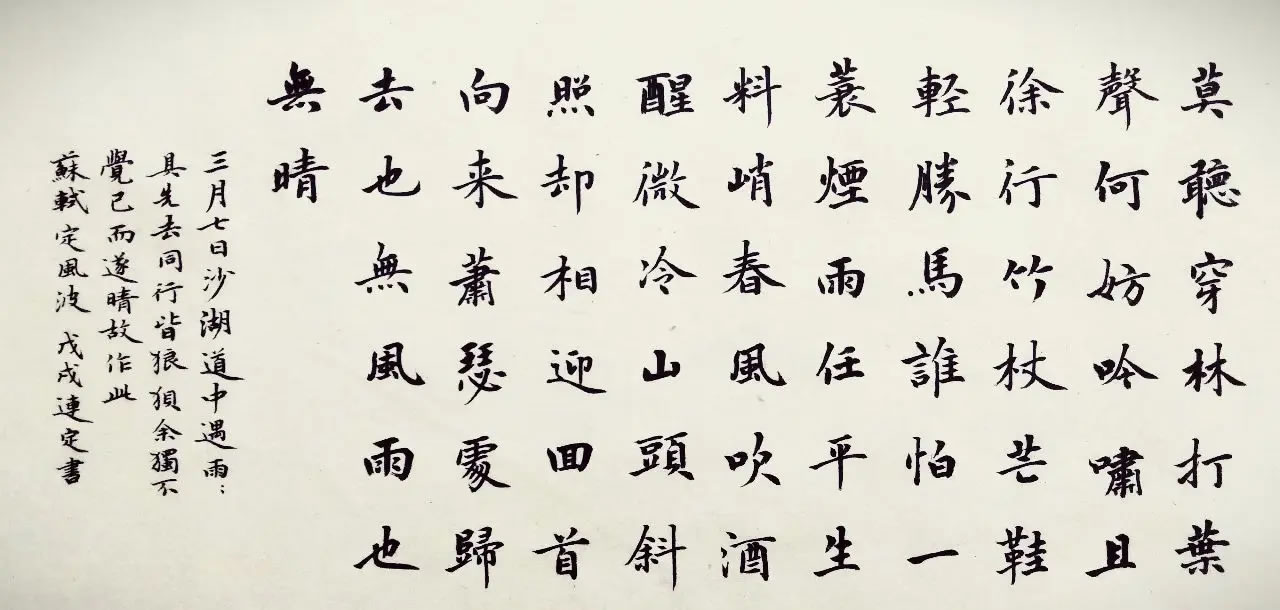 莫聽穿林打葉
聲何妨吟嘯且
徐行竹杖芒鞋
輕勝馬誰怕一
蓑煙雨任平生
料峭春風吹酒
醒微冷山頭斜
照却相迎回首
向来蕭瑟處歸
去也無風雨也
無晴
三月七日沙湖道中遇雨:
具先去同行皆狼狽余獨不
覺已而遂晴故作此
蘇軾定風波 戊戌連定書